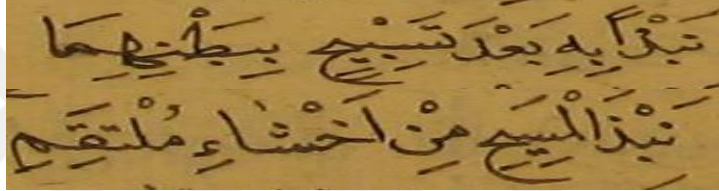 نَبْذًا بِهِ بَعْدَ تَسْبِيْحٍ بِبَطْنِهِمَا
نَبْذَ الْمُسَبِّحِ مِنْ اَحْشَاءِ مُلْتَقِمِ